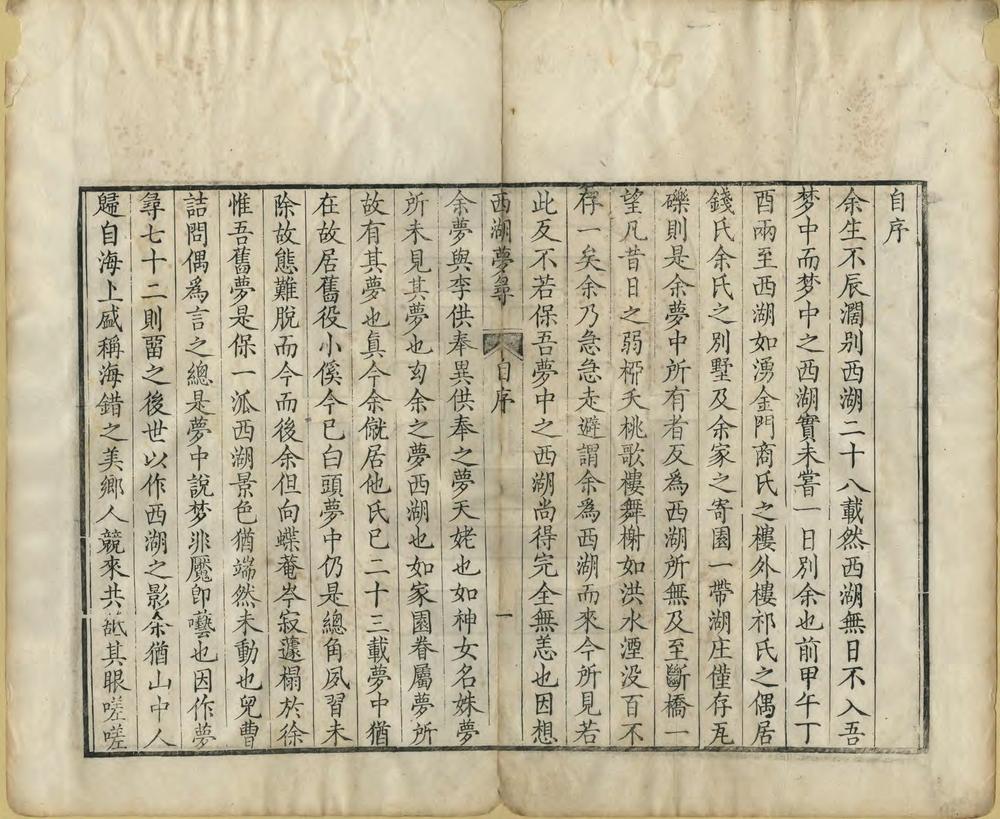 自序
余生不辰濶别西湖二十八載然西湖無日不入吾
梦中而梦中之西湖實未嘗一日别余也前甲午丁
酉兩至西湖如湧金門商氏之樓外樓祁氏之偶居
錢氏余氏之别墅及余家之寄園一帶湖庄僅存瓦
礫則是余夢中所有者反為西湖所無及至斷橋一
望凡昔日之弱栁夭桃歌樓舞榭如洪水湮没百不
存一矣余乃急急走避謂余為西湖而來今所見若
此反不若保吾夢中之西湖尚得完全無恙也因想
西湖夢尋 自序 一
余夢與李供奉異供奉之夢天姥也如神女名姝夢
所未見其夢也幻余之夢西湖也如家園眷屬夢所
故有其夢也真今余僦居他氏已二十三載夢中猶
在故居舊役小傒今已白頭夢中仍是總角夙習未
除故態難脫而今而後余但向蝶菴岑寂蘧榻於徐
惟吾舊夢是保一泒西湖景色猶端然未動也兒曹
詰問偶為言之總是夢中說梦非魘即囈也因作夢
尋七十二則畱之後世以作西湖之影余猶山中人
歸自海上盛稱海錯之美鄉人競來共䑛其眼嗟嗟